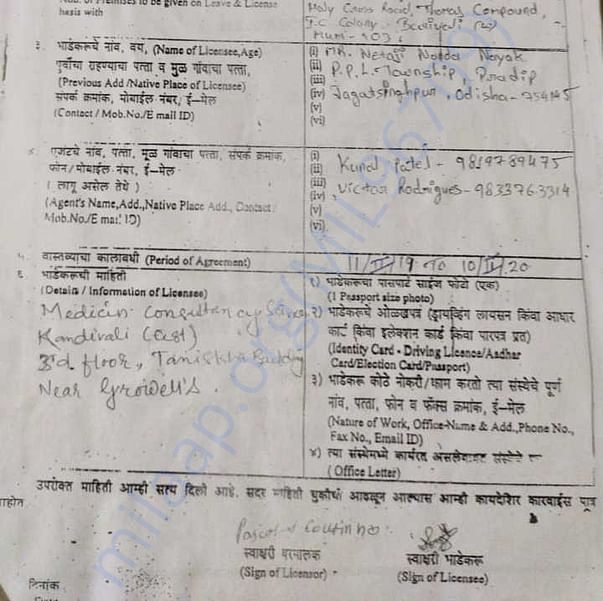 No. of Premises to be given on Leave & License
basis with
Holy Cross Road, Thomas Compound,
I.C Colony - Borivali (W)
Mum - 103.
३. भाडेकरूचे नांव, वय, (Name of Licensee,Age)
पूर्वीचा राहण्याचा पत्ता व मुळ गांवाचा पत्ता,
(Previous Add /Native Place of Licensee)
संपर्क क्रमांक, मोबाईल नंबर, ई-मेल
(Contact / Mob.No./E mail ID)
(i) MR. Netaji Nanda Nayak
(ii) P.P.L. Township, Paradip
(iii)
(iv) Jagatsinghpur, Odisha - 754145
(v)
(vi)
४. एजंटचे नांव, पत्ता, मूळ गांवाचा पत्ता, संपर्क क्रमांक,
फोन/मोबाईल नंबर, ई-मेल
( लागू असेल तेथे )
(Agent's Name,Add.,Native Place Add., Contact
Mob.No./E mail ID)
(i) Kunal Patel - 9819789475
(ii)
(iii) Victor Rodrigues - 9833763314
(iv)
(v)
(vi)
५. वास्तव्याचा कालावधी (Period of Agreement)
11/III/19 TO 10/III/20
६. भाडेकरूची माहिती
(Details / Information of Licensee)
Medicin Consultancy
Kandivali (East)
3rd floor, Tanishka Building
Near Growell's.
१) भाडेकरूचा पासपोर्ट साईज फोटो (एक)
(1 Passport size photo)
२) भाडेकरूचे ओळखपत्र (ड्रायव्हिंग लायसन किंवा आधार
कार्ट किंवा इलेक्शन कार्ड किंवा पारपत्र प्रत)
(Identity Card - Driving Licence/Aadhar
Card/Election Card/Passport)
३) भाडेकरू कोठे नोकरी/काम करतो त्या संस्थेचे पूर्ण
नांव, पत्ता, फोन व फॅक्स क्रमांक, ई-मेल
(Nature of Work, Office-Name & Add.,Phone No.,
Fax No., Email ID)
४) त्या संस्थेमध्ये कार्यरत असलेबाबत संस्थेचे
(Office Letter)
उपरोक्त माहिती आम्ही सत्य दिली आहे. सदर माहिती चुकीची आढळून आल्यास आम्ही कायदेशिर कारवाईस पात्र
आहोत
Pascol Coutinho
स्वाक्षरी घरमालक
(Sign of Licensor)
स्वाक्षरी भाडेकरू
(Sign of Licensee)
दिनांक
milaap.org